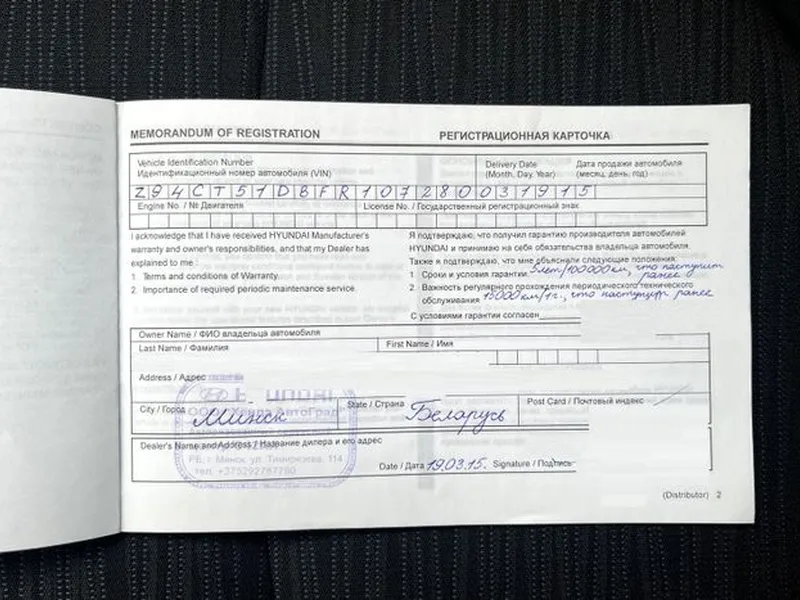 MEMORANDUM OF REGISTRATION РЕГИСТРАЦИОННАЯ КАРТОЧКА
Vehicle Identification Number Delivery Date Дата продажи автомобиля
Идентификационный номер автомобиля (VIN) (Month, Day, Year) (месяц, день, год)
Z94CT51DBFR107280031915
Engine No. / № Двигателя License No. / Государственный регистрационный знак
I acknowledge that I have received HYUNDAI Manufacturer's
warranty and owner's responsibilities, and that my Dealer has
explained to me :
1. Terms and conditions of Warranty.
2. Importance of required periodic maintenance service.
Я подтверждаю, что получил гарантию производителя автомобилей
HYUNDAI и принимаю на себя обязательства владельца автомобиля.
Также я подтверждаю, что мне объяснили следующие положения:
1. Сроки и условия гарантии 5 лет/100000 км, что наступит
ранее
2. Важность регулярного прохождения периодического технического
обслуживания 15000 км/1г., что наступит ранее
С условиями гарантии согласен
Owner Name / ФИО владельца автомобиля
Last Name / Фамилия First Name / Имя
Address / Адрес
City / Город Минск State / Страна Беларусь Post Card / Почтовый индекс
ООО АвтоГрад
Dealer's Name and Address / Название дилера и его адрес
РБ, г. Минск, ул. Тимирязева, 114
тел. +375292787780
Date / Дата 19.03.15. Signature / Подпись
(Distributor) 2